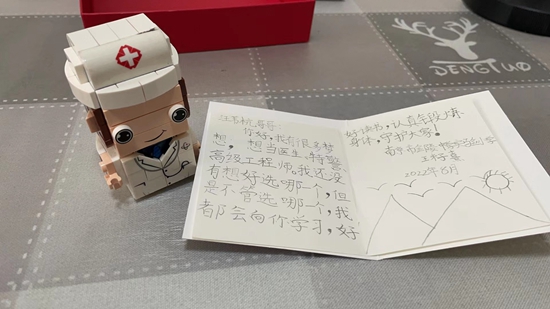 DENGTUO
哥哥：
你好，我有很多梦
想，想当医生、特警、
高级工程师。我还没
有想好选哪个，但
是不管选哪个，我
都会向你学习，好
好读书，认真
身体，守护大家！
南京市 小学
2022年8月